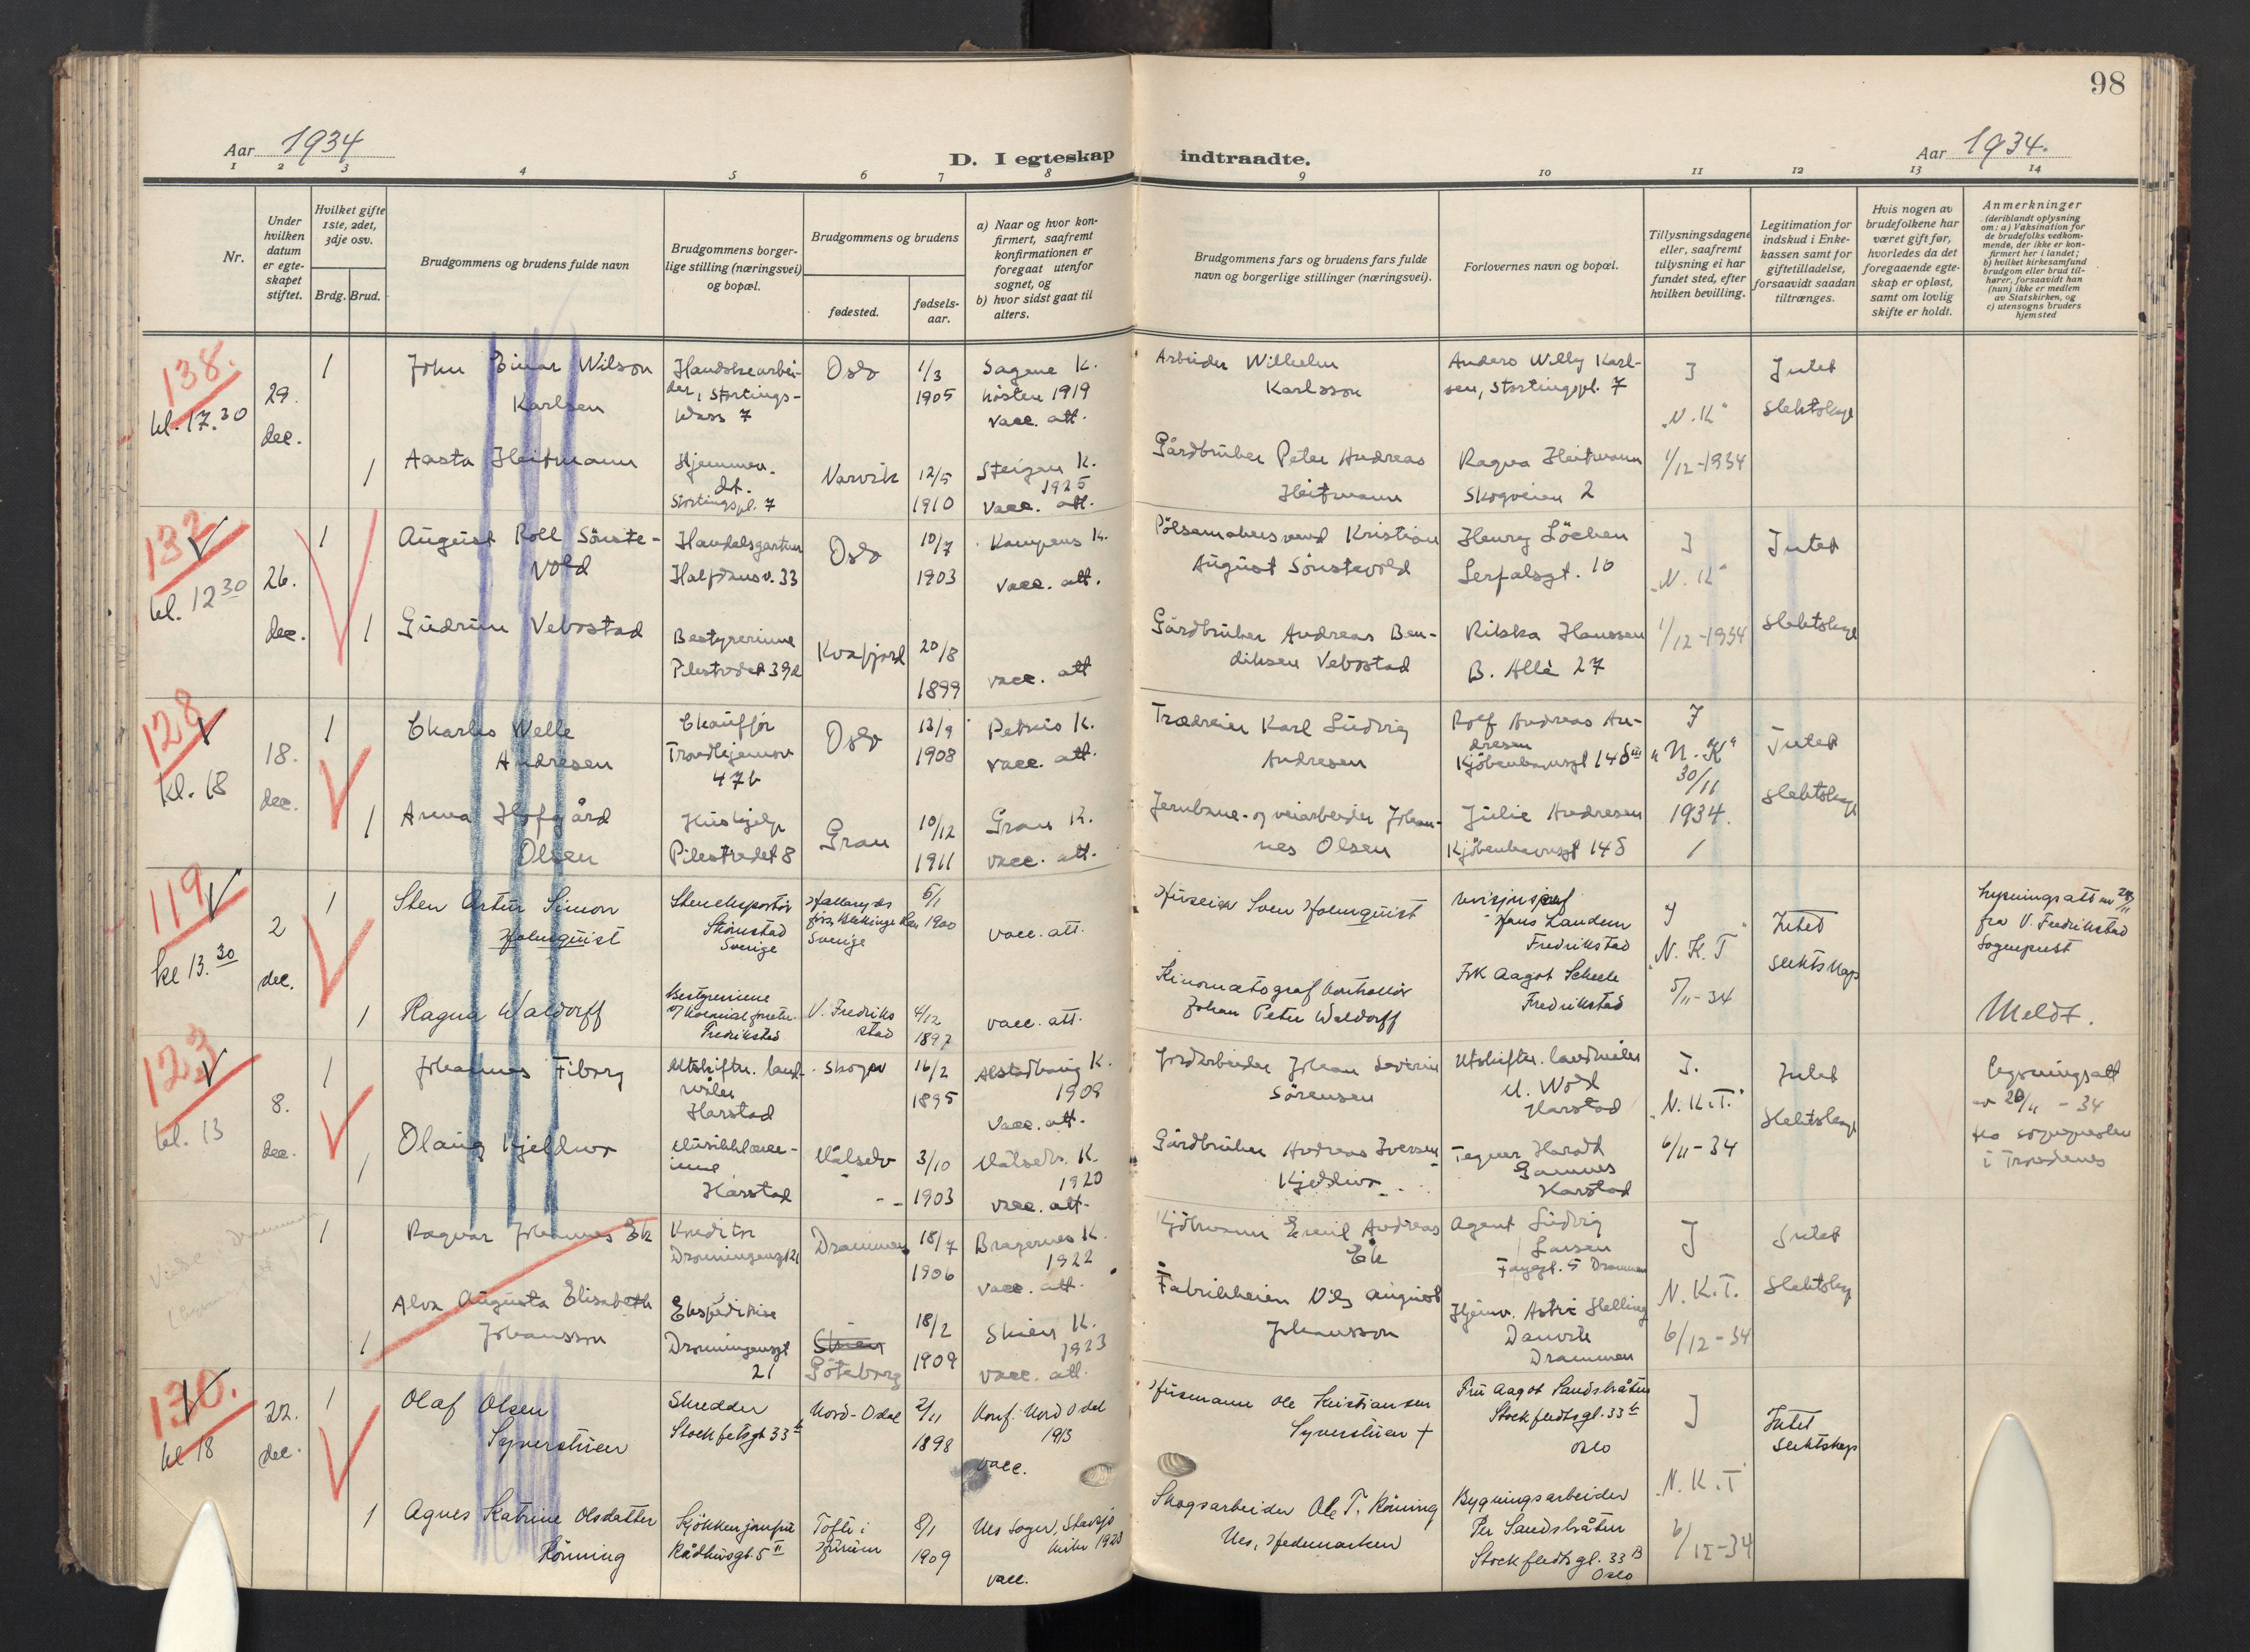 98
Aar 1934
D. I egteskap indtraadte.
Aar 1934.
1 2 3 4 5 6 7 8 9 10 11 12 13 14
Nr.
Under hvilken datum er egteskapet stiftet.
Hvilket gifte 1ste, 2det, 3dje osv.
Brdg. Brud.
Brudgommens og brudens fulde navn
Brudgommens borgerlige stilling (næringsvei) og bopæl.
Brudgommens og brudens
fødested.
fødselsaar.
a) Naar og hvor konfirmert, saafremt konfirmationen er foregaat utenfor sognet, og
b) hvor sidst gaat til alters.
Brudgommens fars og brudens fars fulde navn og borgerlige stillinger (næringsvei).
Forlovernes navn og bopæl.
Tillysningsdagene eller, saafremt tillysning ei har fundet sted, efter hvilken bevilling.
Legitimation for indskud i Enkekassen samt for giftetilladelse, forsaavidt saadan tiltrænges.
Hvis nogen av brudefolkene har været gift før, hvorledes da det foregaaende egteskap er opløst, samt om lovlig skifte er holdt.
Anmerkninger
(deriblandt oplysning om: a) Vaksination for de brudefolks vedkommende, der ikke er konfirmert her i landet;
b) hvilket kirkesamfund brudgom eller brud tilhører, forsaavidt han (hun) ikke er medlem av Statskirken, og
c) utensogns bruders hjemsted
138.
kl. 17.30
29. dec.
1
John Einar Wilson
Karlsen
Oslo
1/3
1905
Sagene K.
høsten 1919
vacc. att.
Arbeider Wilhelm
Karlsson
Anders Willy Karlsen, Stortingspl. 7
J
"N.K"
1/12-1934
Intet
slektskap
1
Aasta Heitmann
Stortingspl. 7
Narvik
12/5
1910
Steigen K.
1925
vacc. att.
Gårdbruker Peter Andreas
Heitmann
Ragna Heitmann
Skogveien 2
132
kl. 12 30
26. dec.
1
August Roll Sönstevold
Handelsgartner
Halfdansv. 33
Oslo
10/7
1903
Kampens K.
vacc. att.
Pölsemakersvend Kristian
August Sönstevold
Henry Löchen
J
"N.K"
1/12-1934
Intet
slektskap
1
Gudrun Vebostad
Bestyrerinne
Pilestredet 39
Kvæfjord
20/8
1899
vacc. att
Gårdbruker Andreas Bendiksen Vebostad
Hanssen
B. Allé 27
128
kl. 18
18. dec.
1
Charles Welle
Andresen
Chauffør
Trondhjemsv
47b
Oslo
13/9
1908
Petrus K.
vacc. att.
Trædreier Karl Ludvig
Andresen
Rolf Andreas Andresen
J
"N.K"
30/11
1934.
Intet
slektskap
1
Anna Hofgård
Olsen
Hushjelp
Pilestredet 8
Gran
10/12
1911
Gran K.
vacc. att.
Jernbane- og veiarbeider Johannes Olsen
Julie Andresen
119
kl 13.30
2 dec.
1
Sten Artur Simon
Holmquist
Steneksportør
Strömstad
Sverige
Sverige
5/1
1900
vacc. att.
Huseier Sven Holmquist
Hans Landem
Fredrikstad
J
N.K.T
5/11-34
Intet
slektskap
fra V. Fredrikstad
sogneprest
Meldt.
1
Ragna Waldorff
Bestyrerinne
Fredrikstad
V. Fredrikstad
4/12
1897
vacc. att.
Kinematograf kontrollør
Johan Peter Waldorff
Frk Aagot Scheele
Fredrikstad
123
kl. 13
8. dec.
1
Johannes Fiborg
Utskiftn. landmåler
Harstad
16/2
1895
Alstadhaug K.
1909
vacc. att.
Jordarbeider Johan Severin
Sörensen
Utskiftn. landmåler
M. Wold
Harstad
J.
"N.K.T."
6/11-34
Intet
slektskap
lysningsatt
av 20/11 - 34
fra sognepresten
i Trondenes
1
Olaug Kjeldmo
Harstad
Målselv
3/10
1903
Målselv. K.
1920
vacc. att.
Gårdbruker Andreas Iversen
Kjeldmo
Tegner Harald
Harstad
1
Ragnar Johannes Ek
Konditor
Dronningensgt 21
Drammen
18/7
1906
Bragernes K.
1922
vacc. att.
Kjöbmann Emil Andreas
Ek
Agent Ludvig
Larsen
J
N.K.T.
6/12-34
Intet
slektskap
1
Alva Augusta Elisabeth
Johansson
Ekspeditrise
Dronningensgt
21
Skien
Göteborg
18/2
1909
Skien K.
1923
vacc. att.
Fabrikkeier Nils August
Johansson
Hjemv. Astri Helling
Danvik
Drammen
130.
kl 18
22. dec.
1
Olaf Olsen
Syverstuen
Skredder
Stockfletsgt 33b
Nord-Odal
2/11
1898
Konf. Nord Odal
1913
vacc.
Husmann Ole Kristiansen
Syverstuen †
Fru Aagot Sandsbråten
Stockfledtsgt. 33b
Oslo
J
"N.K.T"
6/12-34
Intet
slektskap
1
Agnes Katrine Olsdatter
Rönning
Kjökkenjomfru
Rådhusgt. 5 II
Tofte i
Hurum
8/1
1909
Nes Sogn, Stavsjø
kirke 1923
vacc.
Skogsarbeider Ole T. Rönning
Nes, Hedemarken
Bygningsarbeider
Per Sandsbråten
Stockfledtsgt. 33 B
Oslo